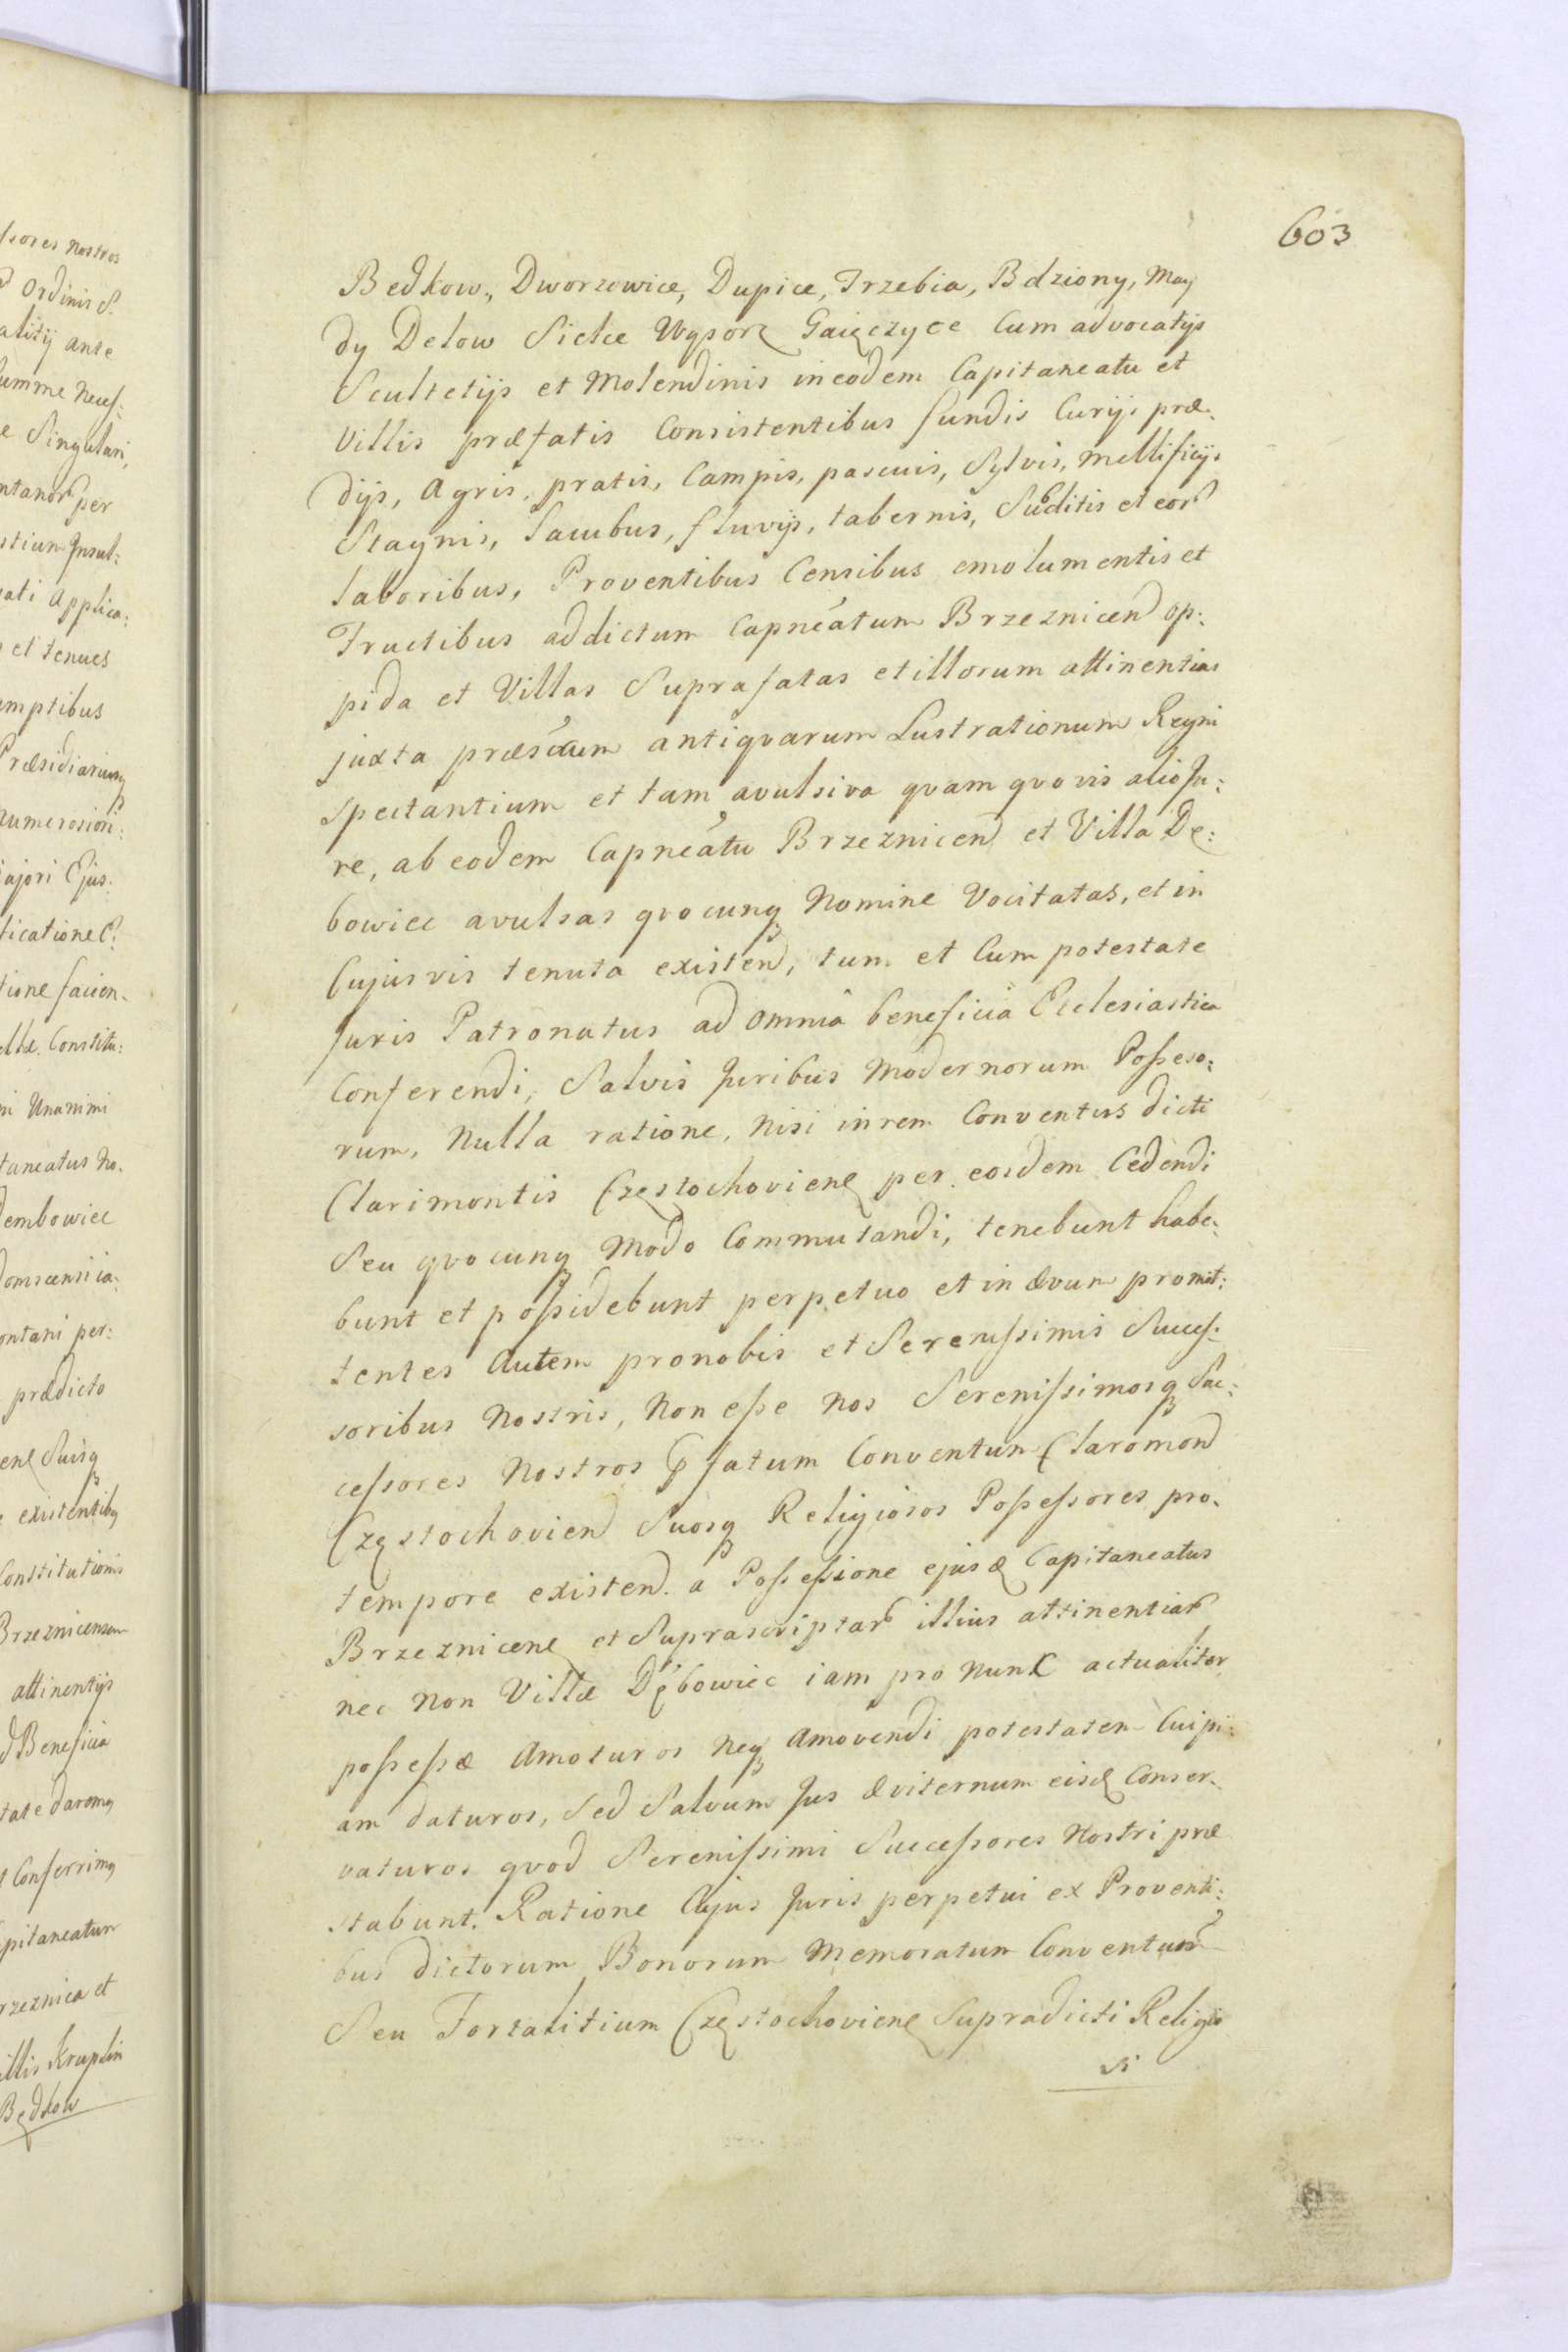 ssores nostros
Ordinis S.
alitij ante
summe neces:
e Singulari,
ntanor per
stium Insul:
gati Applica:
et tenues
emptibus
Præsidiariumq
numerosiori:
ajori Ejus:
ficatione C:
tione facien:
ellæ Constitu:
ni Unanimi
taneatus No:
Dembowiec
domscensi ia:
ontani per:
prædicto
enẹ Suisq
e existentibq
Constitutionis
Brzeznicensem
attinentijs
d Beneficia
tate daromq
t Conferrimq
pitaneatum
rzeznica et
illis Kruplin
Będkow
603
Bedkow., Dworzowice, Dupice, Trzebia, Bdziony, May
dy Delow Sielce Wgsorz Gaięczyce Cum advocatijs
Scultetijs et Molendinis in eodem Capitaneatu et
Villis præfatis Consistentibus fundis Curijs præ:
dijs, Agris, pratis, Campis, pascuis, Sylvis, mellificijs
Stagnis, lacubus, fluvijs, tabernis, Subditis et eor
laboribus, Proventibus Censibus emolumentis et
Fructibus ad dictum Capneatum Brzeznicen op:
pida et Villas Suprafatas et illorum attinentias
juxta præscum antiqvarum Lustrationum Regni
spectantium et tam avulsiva qvam qvovis alio Ju:
re, ab eodem Capneatu Brzeznicen et Villa De:
bowiec avulsas qvocunq Nomine Vocitatas, et in
Cujusvis tenuta existen, tum et Cum potestate
Juris Patronatus ad omnia beneficia Ecclesiastica
Conferendi, Salvis Juribus Modernorum Posseso:
rum, Nulla ratione, Nisi in rem Conventus dicti
Clarimontis Częstochovienẹ per eosdem Cedendi
Seu qvocunq Modo Commutandi, tenebunt habe:
bunt et possidebunt perpetuo et in ævum promit:
tentes Autem pro nobis et Serenissimis Succes:
soribus Nostris, Non esse Nos Serenissimosq Suc:
cessores Nostros p fatum Conventum Claromon
Częstochovien Suosq Religiosos Possessores pro
tempore existen. a Possessione ejusd Capitaneatus
Brzeznicenẹ et Suprascriptar illius attinentiar
nec Non Villæ Dębowiec iam pro Nunc actualiter
possessæ Amoturos Neq Amovendi potestatem Cuipi:
am daturos, Sed Salvum Jus æviternum eisd Conser:
vaturos qvod Serenissimi Successores Nostri præ
stabunt. Ratione Cujus Juris perpetui ex Proventi:
bus dictorum Bonorum Memoratum Conventum
Seu Fortalitium Częstochovienẹ Supradicti Religio
si